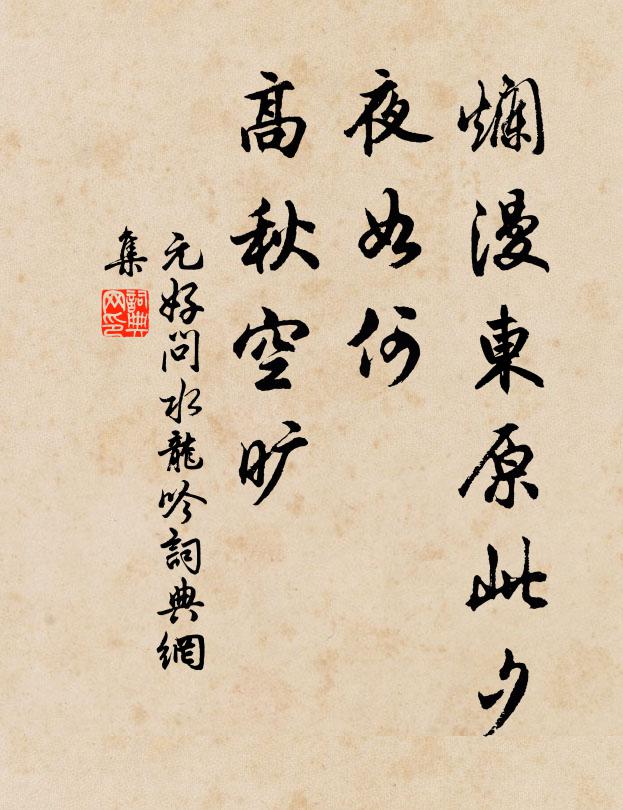 爛漫東原此夕
夜如何
高秋空旷
元好问水龍吟詞典網
集
詞典
网印